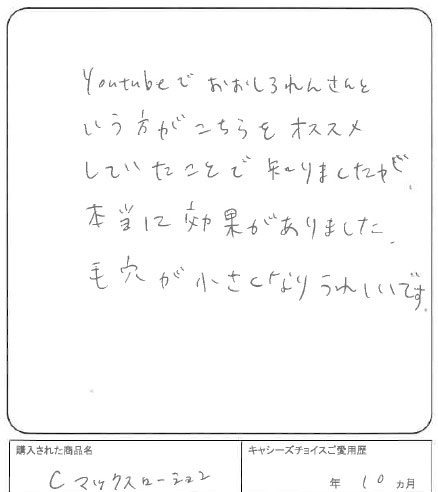 Youtubeで おおしろれんさんと
いう方がこちらを オススメ
していたことで 知りましたが、
本当に効果がありました。
毛穴が小さくなりうれしいです。
購入された商品名
キャシーズチョイスご愛用歴
Cマックスローション
年 10 ヵ月